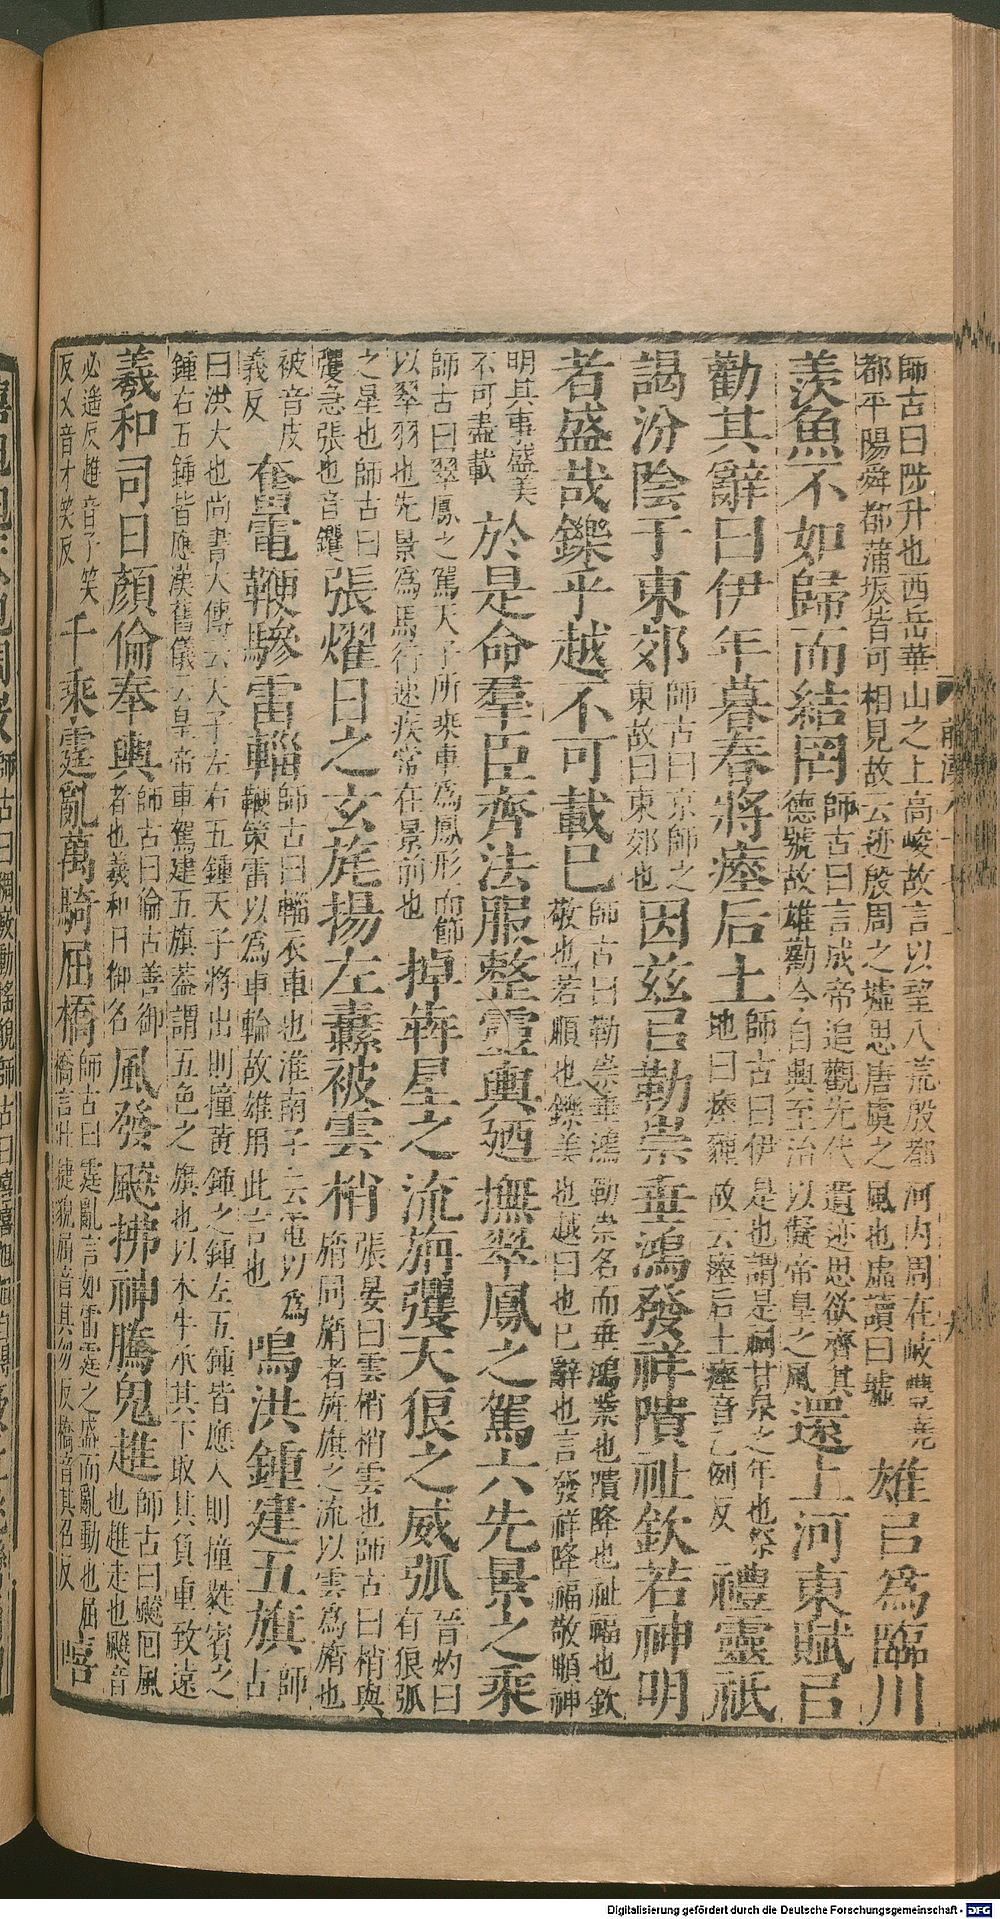 師古曰陟升也西岳華山之上高峻故言以望八荒殷都河內周在岐豐堯
都平陽舜都蒲坂皆可相見故云迹殷周之墟思唐虞之風也虛讀曰墟
雄㠯爲臨川
羨魚不如歸而結罔
師古曰言成帝追觀先代遺迹思欲齊其
德號故雄勸令自興至治以儗帝皇之風
還上河東賦㠯
勸其辭曰伊年暮春將瘞后土
師古曰伊是也謂是祠甘泉之年也祭
地曰瘞薶故云瘞后土瘞音乙例反
禮靈祇
謁汾陰于東郊
師古曰京師之
東故曰東郊也
因兹㠯勒崇垂鴻發祥隤祉欽若神明
者盛哉鑠乎越不可載已
師古曰勒崇垂鴻勒崇名而垂鴻業也隤降也祉福也欽
敬也若順也鑠美也越曰也已辭也言發祥降福敬順神
明其事盛美
不可盡載
於是命羣臣齊法服整靈輿廼撫翠鳳之駕六先景之乘
師古曰翠鳳之駕天子所乘車爲鳳形而飾
以翠羽也先景爲馬行速疾常在景前也
掉犇星之流旃彏天狼之威弧
晉灼曰
有狼弧
之星也師古曰
彏急張也音钁
張燿日之玄旄揚左纛被雲梢
張晏曰雲梢梢雲也師古曰梢與
旓同旓者旌旗之流以雲為旓也
被音皮
義反
奮電鞭驂雷輜
師古曰輜衣車也淮南子云電以爲
鞭策雷以爲車輪故雄用此言也
鳴洪鍾建五旗
師古
曰洪大也尚書大傳云天子左右五鍾天子將出則撞黃鍾之鍾左五鍾皆應入則撞蕤賓之
鍾右五鍾皆應漢舊儀云皇帝車駕建五旗蓋謂五色之旗也以木牛承其下取其負重致遠
羲和司日顏倫奉輿
師古曰倫古善御
者也羲和日御名
風發飈拂神騰鬼趡
師古曰飈回風
也趡走也飈音
必遙反趡音子笑
反又音才笑反
千乘霆亂萬騎屈橋
師古曰霆亂言如雷霆之盛而亂動也屈
橋言壯捷貌屈音其勿反橋音其召反
嘻
前漢
Digitalisierung gefördert durch die Deutsche Forschungsgemeinschaft - DFG